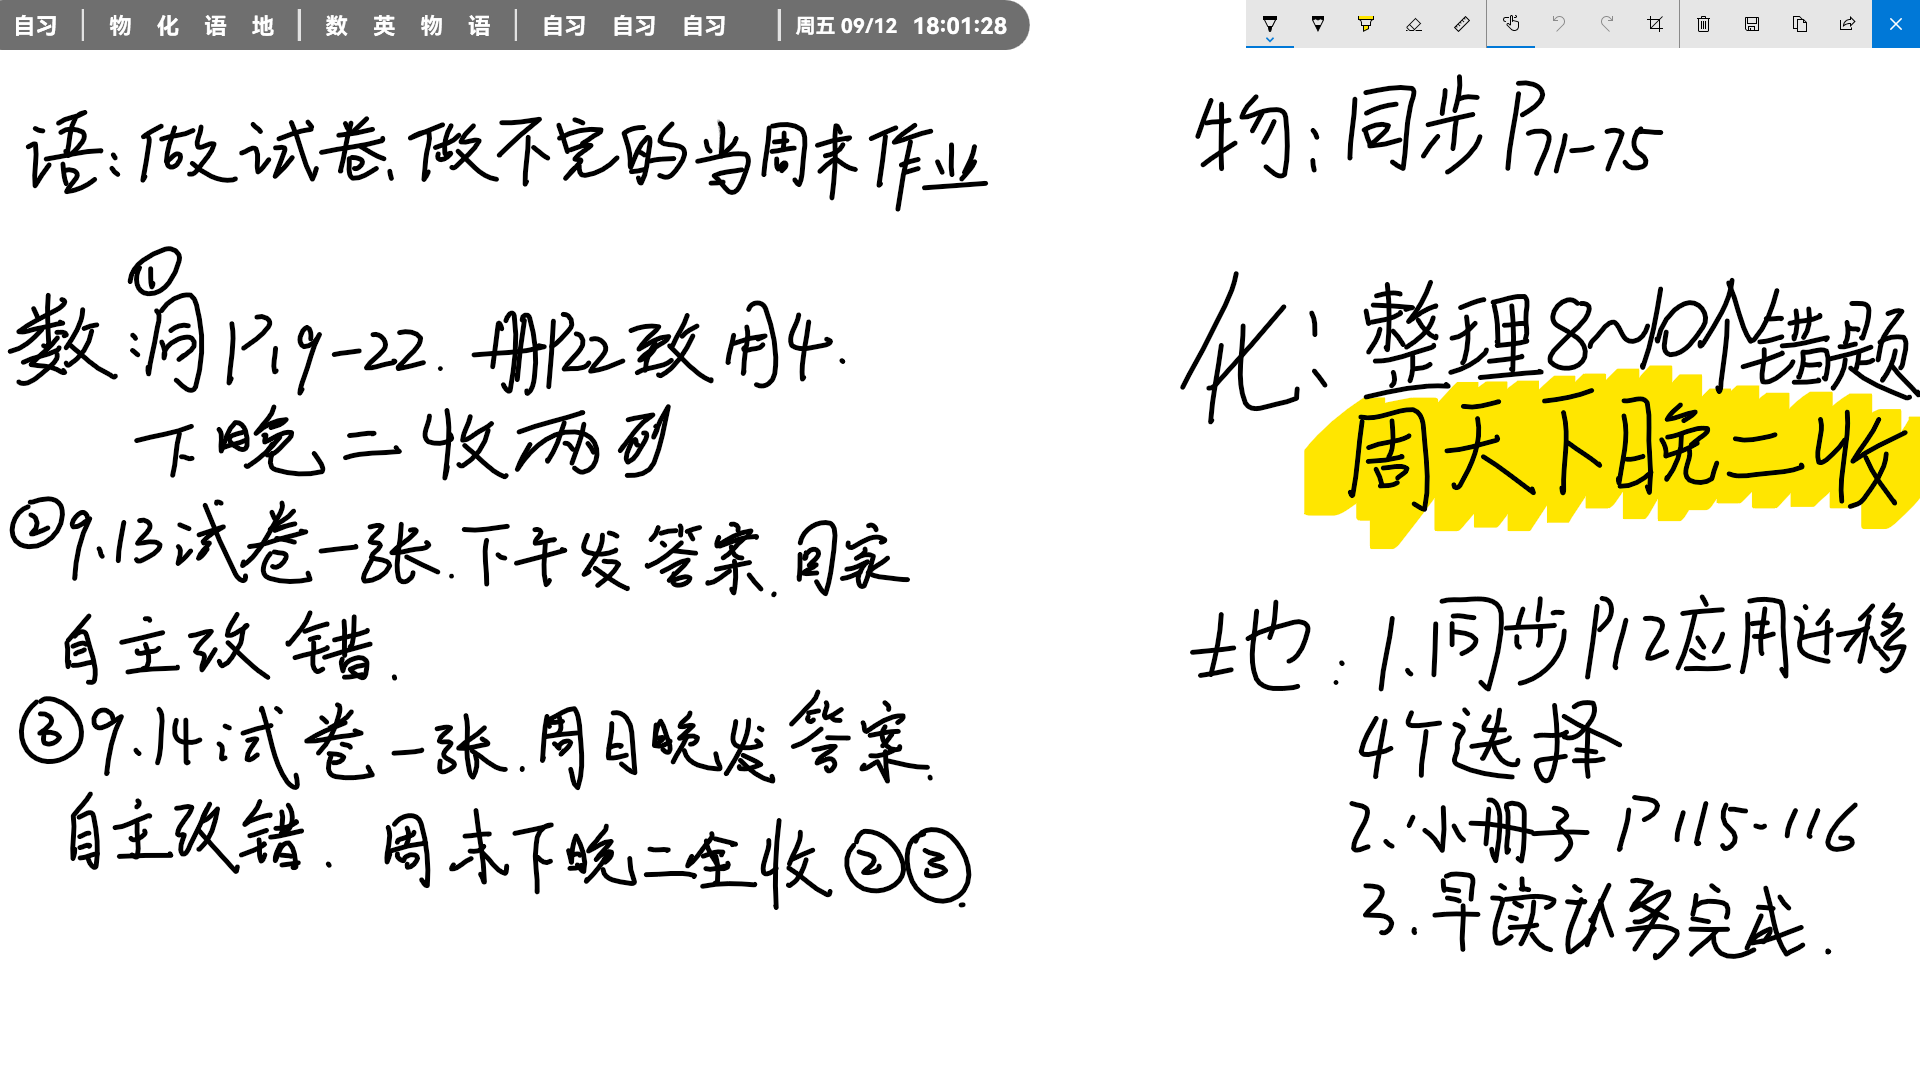 自习 | 物 化 语 地 | 数 英 物 语 | 自习 自习 自习 | 周五 09/12 18:01:28
语:做试卷、做不完的当周末作业
数:①同P19-22. 册P22致用4.
下晚二收两列
②9.13试卷一张.下午发答案.回家
自主改错.
③9.14试卷一张.周日晚发答案.
自主改错. 周末下晚二全收②③.
物:同步P71-75
化:整理8~10个错题
周天下晚二收
地:1.同步P12应用迁移
4个选择
2.小册子P115-116
3.早读认务完成.